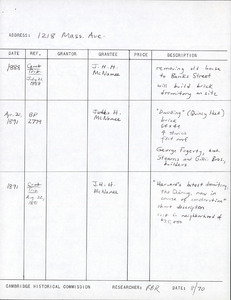 ADDRESS: 1218 Mass Ave.
DATE REF. GRANTOR GRANTEE PRICE DESCRIPTION
1888 J. H. H. McNamee removing old house
to Banks Street
will build brick
dormitory on site
Apr. 21, 1891 BP 2774 John H. McNamee "Dwelling" (Quincy Hall)
brick
4 stories
flat roof
George Fogerty, arch.
Stearns and Bros,
builders
1891 J. H. H. McNamee "Harvard's latest dormitory,
The Quincy, now in
course of construction"
short description
cost in neighborhood of
CAMBRIDGE HISTORICAL COMMISSION RESEARCHER: RBR DATE: 8/70